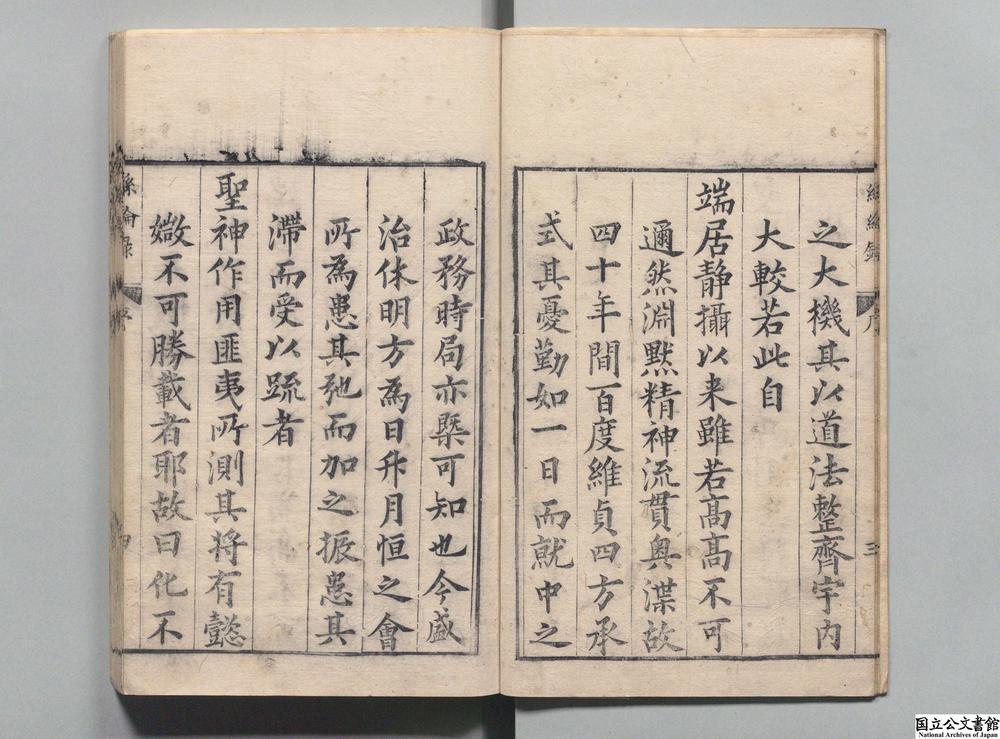 之大機其以道法整齊宇内
大較若此自
端居静攝以来雖若髙髙不可
邇然淵默精神流貫奥渫故
四十年間百度維貞四方承
式其憂勤如一日而就中之
政務時局亦槩可知也今盛
治休明方為日升月恒之會
所為患其弛而加之振患其
滯而受以疏者
聖神作用匪夷所測其将有懿
媺不可勝載者耶故曰化不
序
三
序
四
国立公文書館
National Archives of Japan